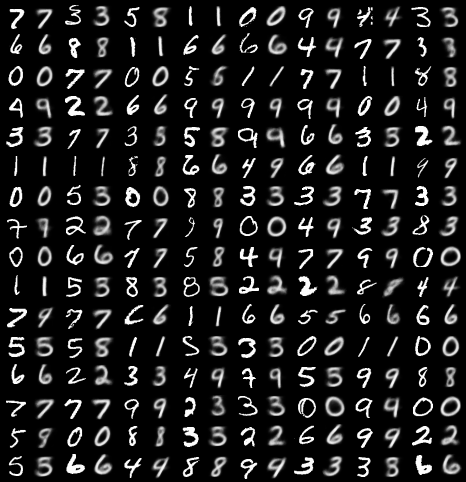 7 7 3 3 5 8 1 1 0 0 9 9 4 4 3 3
6 6 8 8 1 1 6 6 6 6 4 4 7 7 3 3
0 0 7 7 0 0 5 5 1 1 7 7 1 1 8 8
9 9 2 2 6 6 9 9 9 9 9 9 0 0 4 9
3 3 7 7 3 3 5 8 9 9 6 6 3 3 2 2
1 1 1 1 8 8 6 6 4 9 6 6 1 1 9 9
0 0 5 3 0 0 8 8 3 3 3 3 7 7 3 3
7 9 2 2 7 7 9 9 0 0 4 9 3 3 8 3
0 0 6 6 7 7 5 8 4 9 7 7 9 9 0 0
1 1 5 3 8 3 8 5 2 2 2 2 8 8 4 4
7 9 7 7 6 6 1 1 6 6 5 5 6 6 6 6
5 5 5 8 1 1 5 3 3 3 0 0 1 1 0 0
6 6 2 2 3 3 4 9 7 9 5 5 9 9 8 8
7 7 7 7 9 9 2 3 3 3 0 0 9 9 0 0
5 9 0 0 8 8 3 3 2 2 6 6 9 9 2 2
5 5 6 6 4 9 8 8 9 9 3 3 3 3 6 6